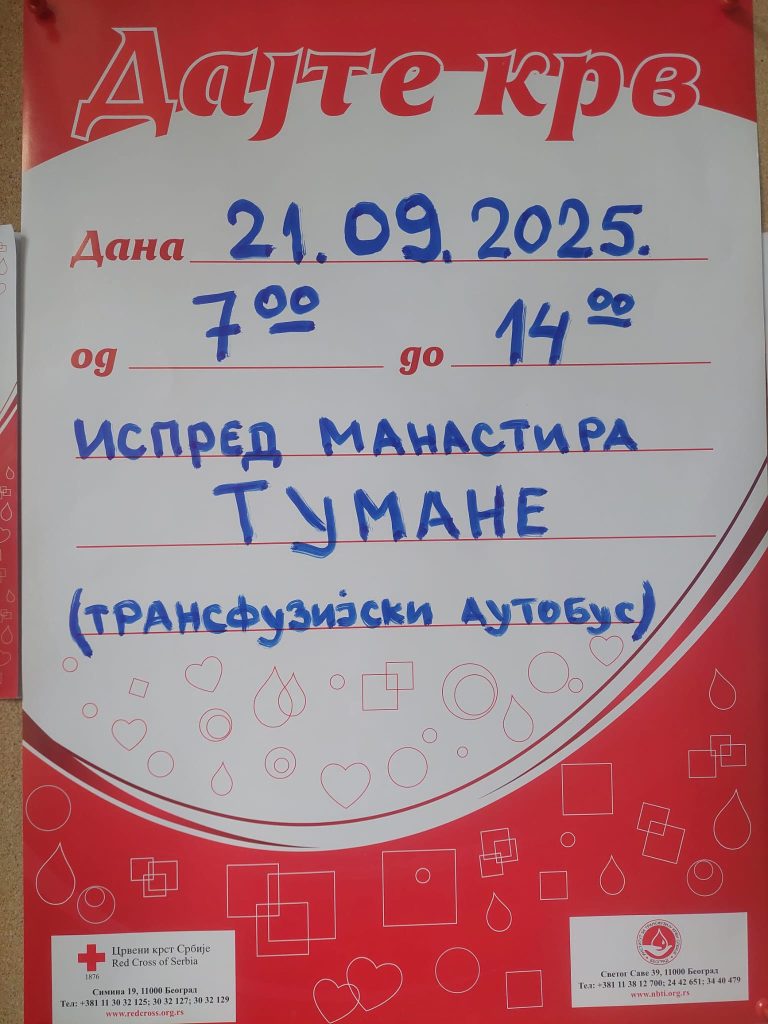 Дајте крв
Дана 21.09.2025.
од 7⁰⁰ до 14⁰⁰
ИСПРЕД МАНАСТИРА
ТУМАНЕ
(ТРАНСФУЗИЈСКИ АУТОБУС)
Црвени крст Србије
Red Cross of Serbia
1876
Симина 19, 11000 Београд
Тел: +381 11 30 32 125; 30 32 127; 30 32 129
www.redcross.org.rs
Светог Саве 39, 11000 Београд
Тел: +381 11 38 12 700; 24 42 651; 34 40 479
www.nbti.org.rs